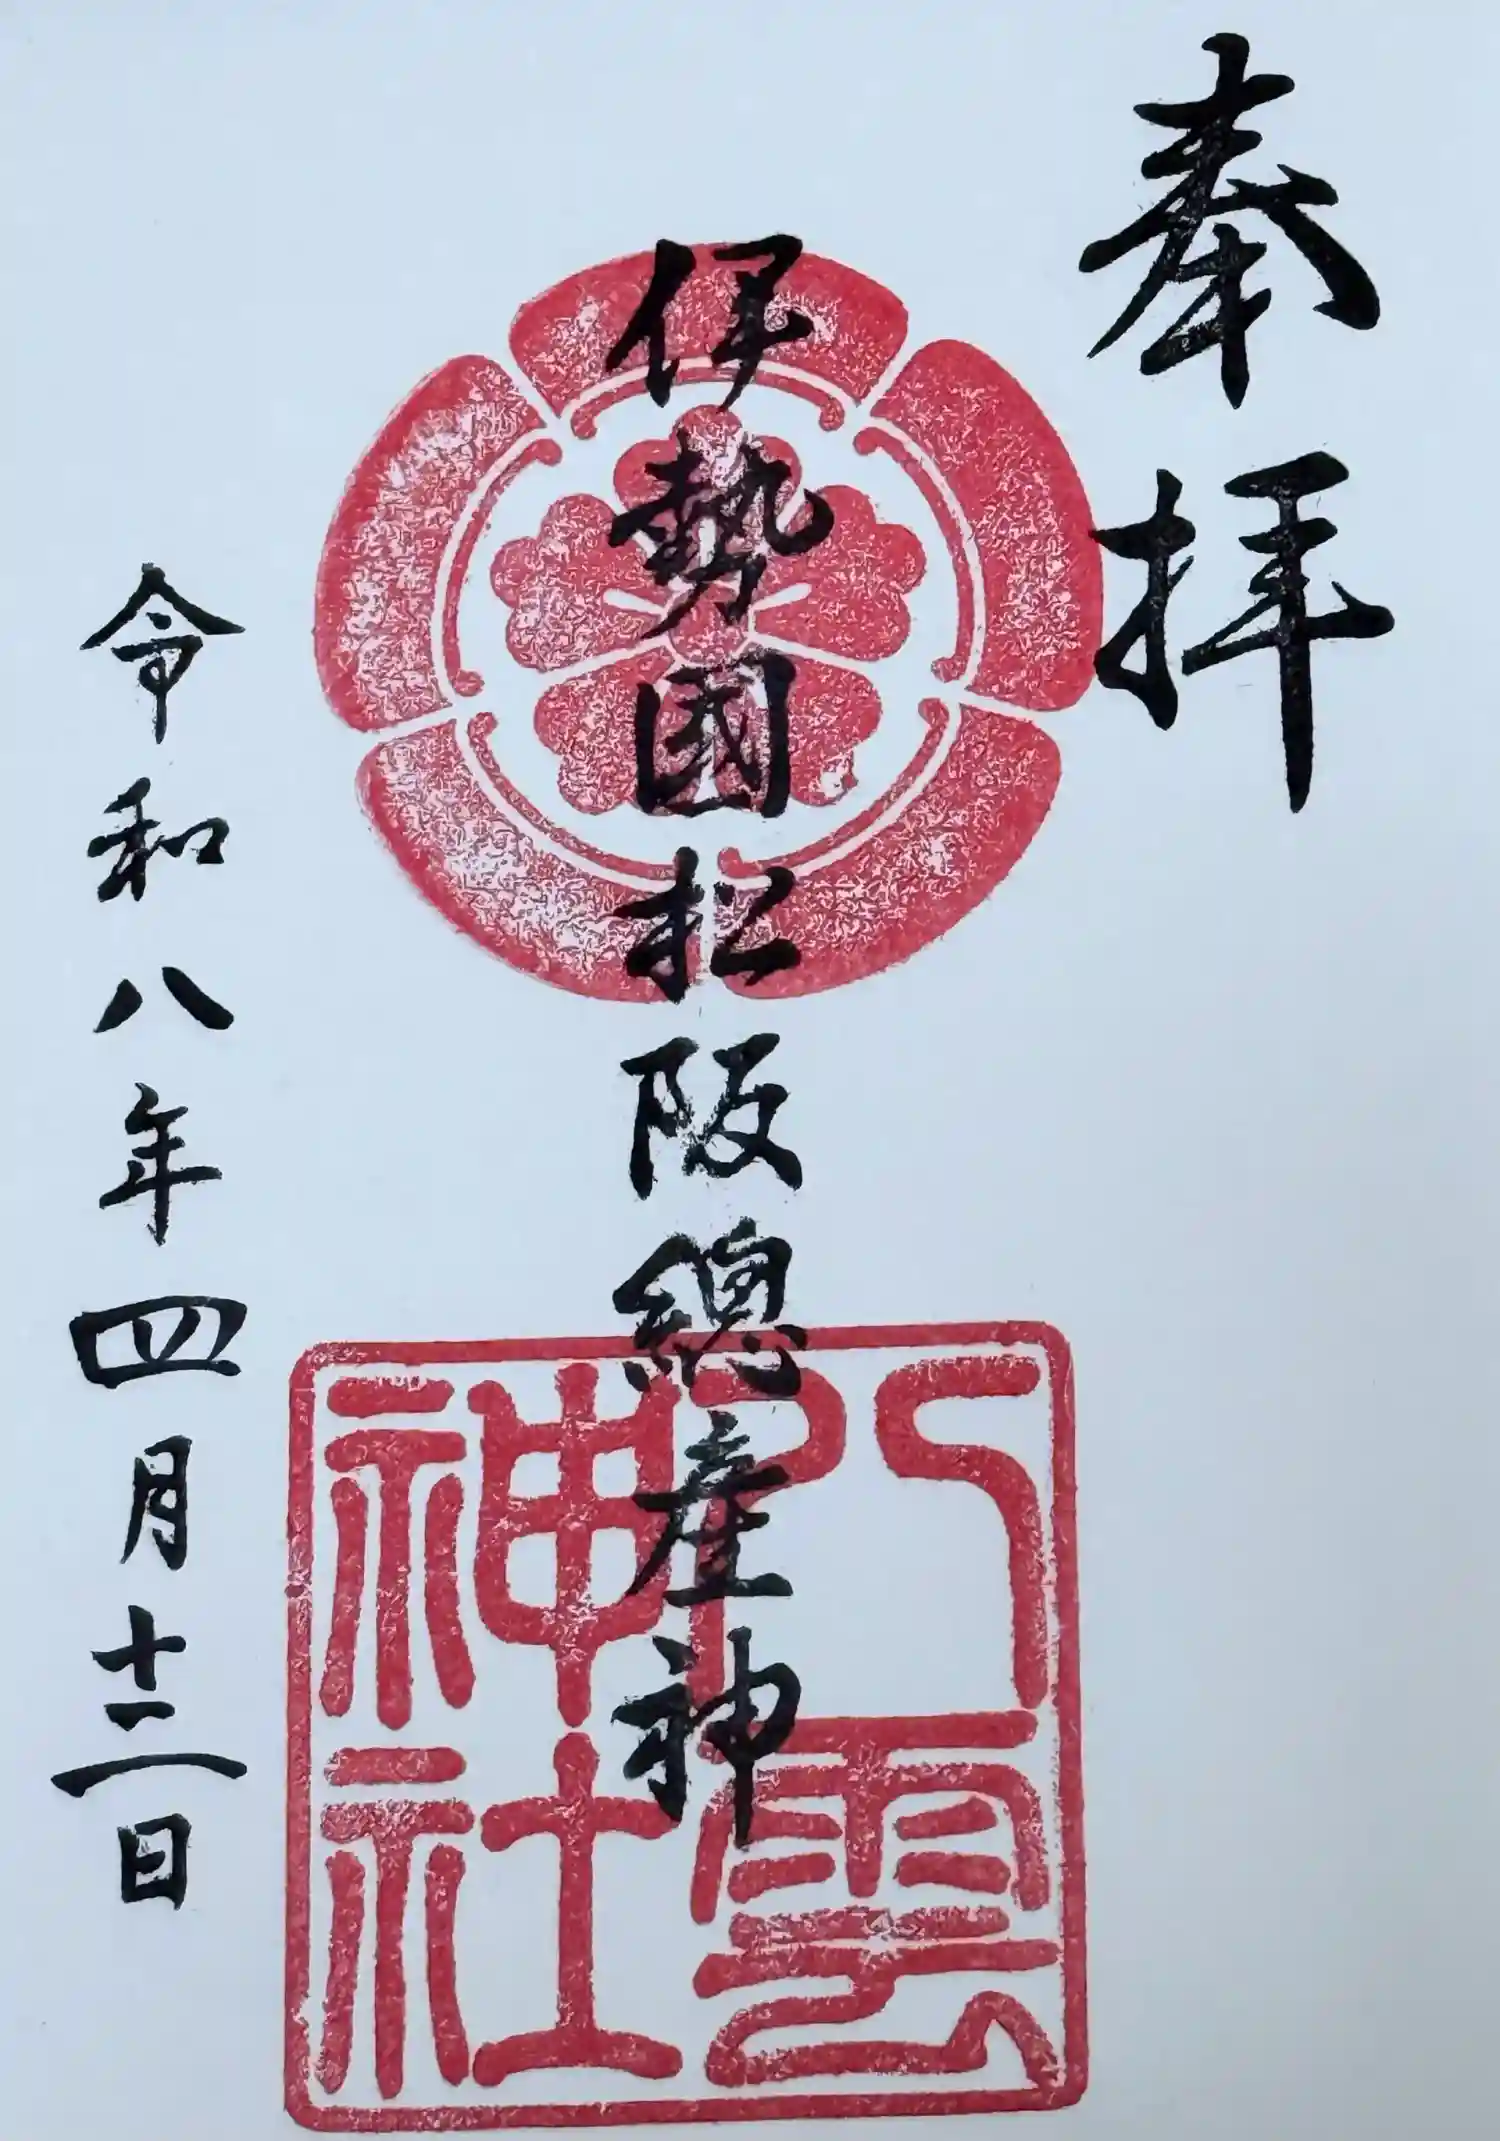 奉拝
伊勢國松阪總産神
八雲
神社
令和八年四月十二日